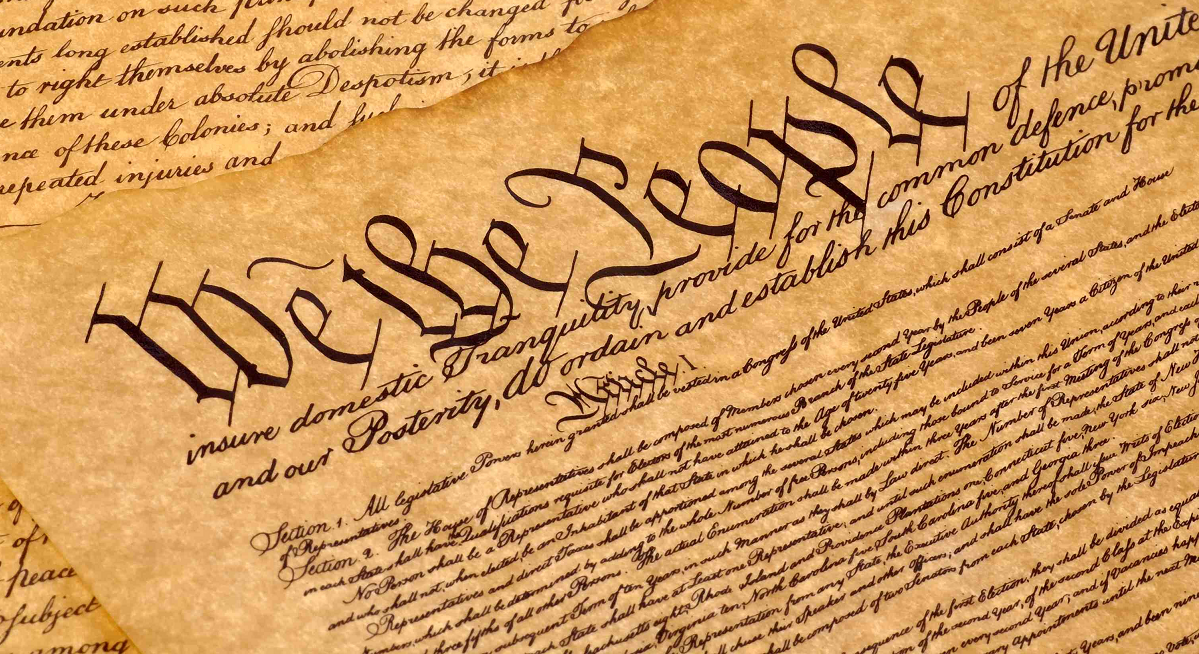 undation on such
ents long established should not be changed for
to right themselves by abolishing the forms to
e them under absolute Despotism; it is
nce of these Colonies; and
repeated injuries and
We the People of the Unite
insure domestic Tranquility, provide for the common defence, promo
and our Posterity, do ordain and establish this Constitution for the
Article I
Section. 1. All legislative Powers herein granted shall be vested in a Congress of the United States, which shall consist of a Senate and House
of Representatives.
Section. 2. The House of Representatives shall be composed of Members chosen every second Year by the People of the several States, and the Elect
in each State shall have Qualifications requisite for Electors of the most numerous Branch of the State Legislature.
No Person shall be a Representative who shall not have attained to the Age of twenty five Years, and been seven Years a Citizen of the United
and who shall not, when elected, be an Inhabitant of that State in which he shall be chosen.
Representatives and direct Taxes shall be apportioned among the several States which may be included within this Union, according to their
Numbers, which shall be determined by adding to the whole Number of free Persons, including those bound to Service for a Term of Years, and
three fifths of all other Persons. The actual Enumeration shall be made within three Years after the first Meeting of the Congress
subsequent Term of ten Years, in such Manner as they shall by Law direct. The Number of Representatives shall not
State shall have at Least one Representative; and until such enumeration shall be made, the State of New
eight, Rhode Island and Providence Plantations one, Connecticut five, New York six, New
Virginia ten, North Carolina five, South Carolina five, and Georgia three.
Representation from any State, the Executive Authority thereof shall issue Writs of Electio
shall chuse their Speaker and other Officers; and shall have the sole Power of Impeach
shall be composed of two Senators from each State, chosen by the Legislature
sequence of the first Election, they shall be divided as equa
of the second Year, of the second Class at the Exp
every second Year; and if Vacancies happ
Appointments until the next M
Years, and been nine
of
peace
subject
among